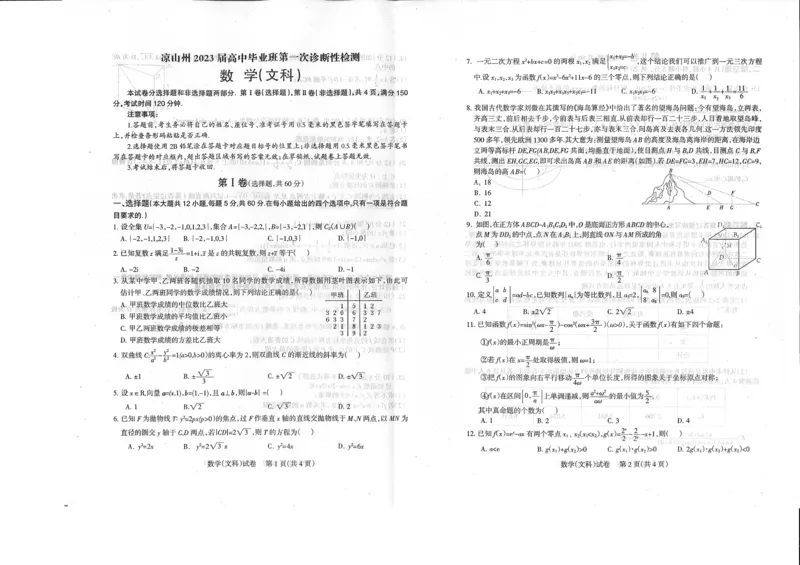 凉山州 2023 届高中毕业班第一次诊断性检测
数 学(文科)
本试卷分选择题和非选择题两部分. 第Ⅰ卷(选择题),第Ⅱ卷(非选择题),共 4 页,满分 150
分,考试时间 120 分钟.
注意事项:
1.答题前,考生务必将自己的姓名、座位号、准考证号用 0.5 毫米的黑色签字笔填写在答题卡
上,并检查条形码粘贴是否正确.
2.选择题使用 2B 铅笔涂在答题卡对应题目标号的位置上;非选择题用 0.5 毫米黑色签字笔书
写在答题卡的对应框内,超出答题区域书写的答案无效;在草稿纸、试题卷上答题无效.
3.考试结束后,将答题卡收回.
第Ⅰ卷(选择题,共 60 分)
一、选择题(本大题共 12 小题,每题 5 分,共 60 分.在每小题给出的四个选项中,只有一项是符合题
目要求的.)
1. 设全集 U={-3,-2,-1,0,1,2,3},集合 A={-3,-2,2},B={-3,-2,1},则 C_U(A∪B)( )
A. {-2,-1,1,2,3} B. {-2,-1,0,3} C. {-1,0,3} D. {-1,0}
2. 已知复数 z 满足 (1-3i)/z=1+i,z̄ 是 z 的共轭复数,则 z+z̄ 等于( )
A. -2i B. -2 C. -4i D. -1
3. 从某中学甲、乙两班各随机抽取 10 名同学的数学成绩,所得数据用茎叶图表示如下,由此可
估计甲、乙两班同学的数学成绩情况,则下列结论正确的是( )
甲班 乙班
A. 甲班数学成绩的中位数比乙班大
B. 甲班数学成绩的平均值比乙班小
C. 甲乙两班数学成绩的极差相等
D. 甲班数学成绩的方差比乙班大
4. 双曲线 C:x²/a²-y²/b²=1(a>0,b>0)的离心率为 2,则双曲线 C 的渐近线的斜率为( )
A. ±1 B. ±√3/3 C. ±√2 D. ±√3
5. 设 x∈R,向量 a=(x,1),b=(1,-1),且 a⊥b,则|a-b|=( )
A. 1 B. √2 C. √3 D. 2
6. 已知 F 为抛物线 T:y²=2px(p>0)的焦点,过 F 作垂直 x 轴的直线交抛物线于 M、N 两点,以 MN 为
直径的圆交 y 轴于 C,D 两点,若|CD|=2√3,则 T 的方程为( )
A. y²=2x B. y²=2√3x C. y²=4x D. y²=6x
数学(文科)试卷 第 1 页(共 4 页)
7. 一元二次方程 x²+bx+c=0 的两根 x₁,x₂ 满足{x₁+x₂=-b x₁x₂=c,这个结论我们可以推广到一元三次方程
中.设 x₁,x₂,x₃ 为函数 f(x)=x³-6x²+11x-6 的三个零点,则下列结论正确的是( )
A. x₁+x₂+x₃=-6 B. x₁x₂+x₂x₃+x₁x₃=-11 C. x₁x₂x₃=-6 D. 1/x₁+1/x₂+1/x₃=11/6
8. 我国古代数学家刘徽在其撰写的《海岛算经》中给出了著名的望海岛问题:今有望海岛,立两表,
齐高三丈,前后相去千步,今前表与后表三相直.从前表却行一百二十三步,人目着地取望岛峰,
与表末三合,从后表却行一百二十七步,亦与表末三合.问岛高及去表各几何.这一方法领先印度
500 多年,领先欧洲 1300 多年.其大意为:测量望海岛 AB 的高度及海岛离海岸的距离,在海岸边
立两等高标杆 DE,FG(AB,DE,FG 共面,均垂直于地面),使目测点 H 与 B,D 共线,目测点 C 与 B,F
共线,测出 EH,GC,EG,即可求出岛高 AB 和 AE 的距离(如图).若 DE=FG=3,EH=7,HC=12,GC=9,
则海岛的高 AB=( )
A. 18
B. 16
C. 12
D. 21
9. 如图,在正方体 ABCD-A₁B₁C₁D₁ 中,O 是底面正方形 ABCD 的中心,
点 M 为 DD₁ 的中点,点 N 在 A₁B₁ 上,则直线 ON 与 AM 所成的角
为( )
A. π/6 B. π/4
C. π/3 D. π/2
10. 定义|a b c d|=ad-bc,已知数列{aₙ}为等比数列,且 a₆=2,|a₄ 8 8 a₈|=0,则 a₆=( )
A. 4 B. ±2√2 C. 2√2 D. ±4
11. 已知函数 f(x)=sin²(ωx-π/2)-cos²(ωx+3π/2)(ω>0),关于函数 f(x)有如下四个命题:
①f(x)的最小正周期是π/ω;
②若 f(x)在 x=π/2 处取得极值,则 ω=1;
③把 f(x)的图象向右平行移动 π/4ω 个单位长度,所得的图象关于坐标原点对称;
其中真命题的个数为( )
A. 1 B. 2 C. 3 D. 4
12. 已知 f(x)=eˣ-ax 有两个零点 x₁,x₂(x₁<x₂),
A. a<e B. g(x₁)+g(x₂)>0 C. g(x₁)·g(x₂)>0 D. 2g(x₁)·g(x₂)+g(x₂)<0
数学(文科)试卷 第 2 页(共 4 页)